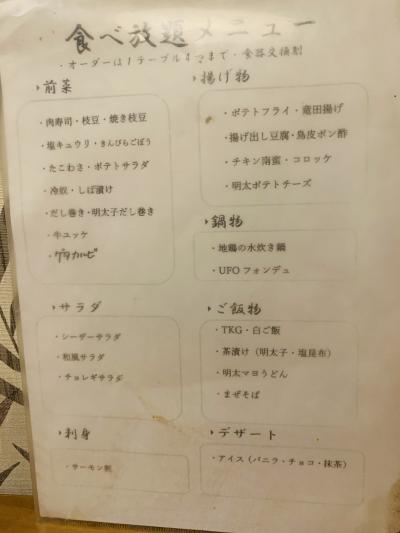 食べ放題メニュー
・オーダーは1テーブル4つまで・食器交換制
▶前菜
・肉寿司・枝豆・焼き枝豆
・塩キュウリ・きんぴらごぼう
・たこわさ・ポテトサラダ
・冷奴・しば漬け
・だし巻き・明太子だし巻き
・牛ユッケ
▶サラダ
・シーザーサラダ
・和風サラダ
・チョレギサラダ
▶刺身
・サーモン刺
▶揚げ物
・ポテトフライ・竜田揚げ
・揚げ出し豆腐・鳥皮ポン酢
・チキン南蛮・コロッケ
・明太ポテトチーズ
▶鍋物
・地鶏の水炊き鍋
・UFOフォンデュ
▶ご飯物
・TKG・白ご飯
・茶漬け（明太子・塩昆布）
・明太マヨうどん
・まぜそば
▶デザート
・アイス（バニラ・チョコ・抹茶）